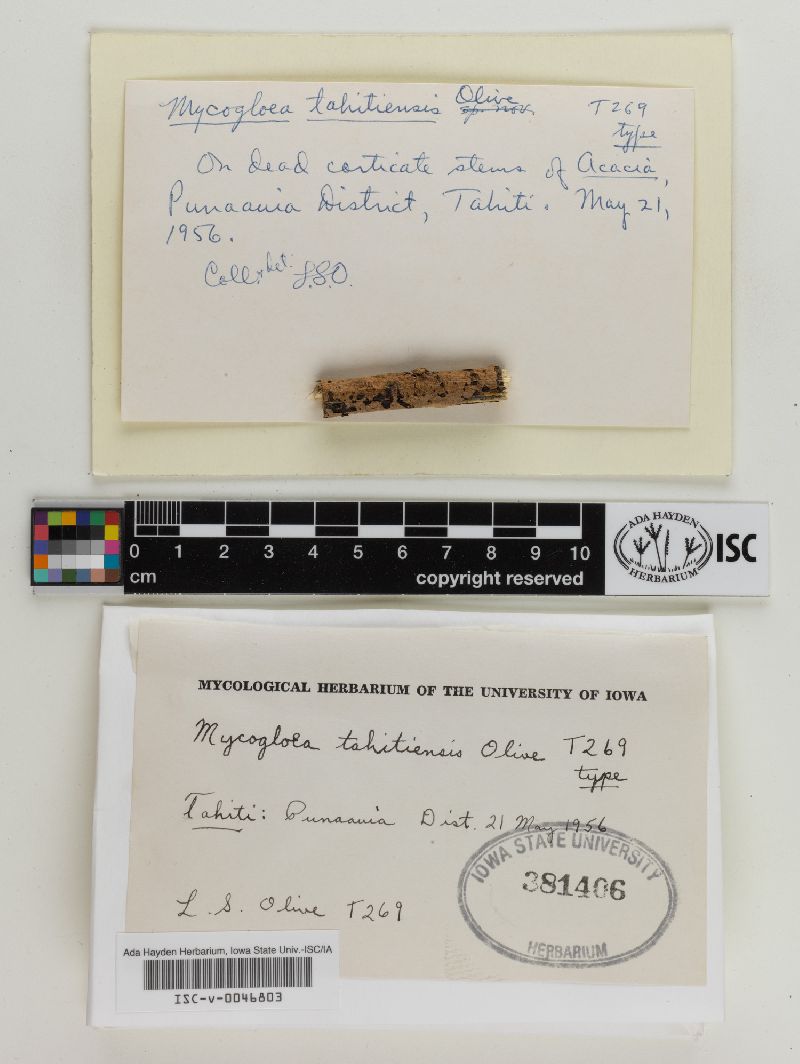 Mycogloea tahitiensis Olive sp. nov. T269
type
On dead corticate stems of Acacia,
Punaauia District, Tahiti. May 21,
1956.
Coll. & det. L.S.O.
0 1 2 3 4 5 6 7 8 9 10
cm copyright reserved
ADA HAYDEN
HERBARIUM
ISC
MYCOLOGICAL HERBARIUM OF THE UNIVERSITY OF IOWA
Mycogloea tahitiensis Olive T269
type
Tahiti: Punaauia Dist. 21 May 1956
IOWA STATE UNIVERSITY
381406
HERBARIUM
L. S. Olive T269
Ada Hayden Herbarium, Iowa State Univ.-ISC/IA
ISC-v-0046803